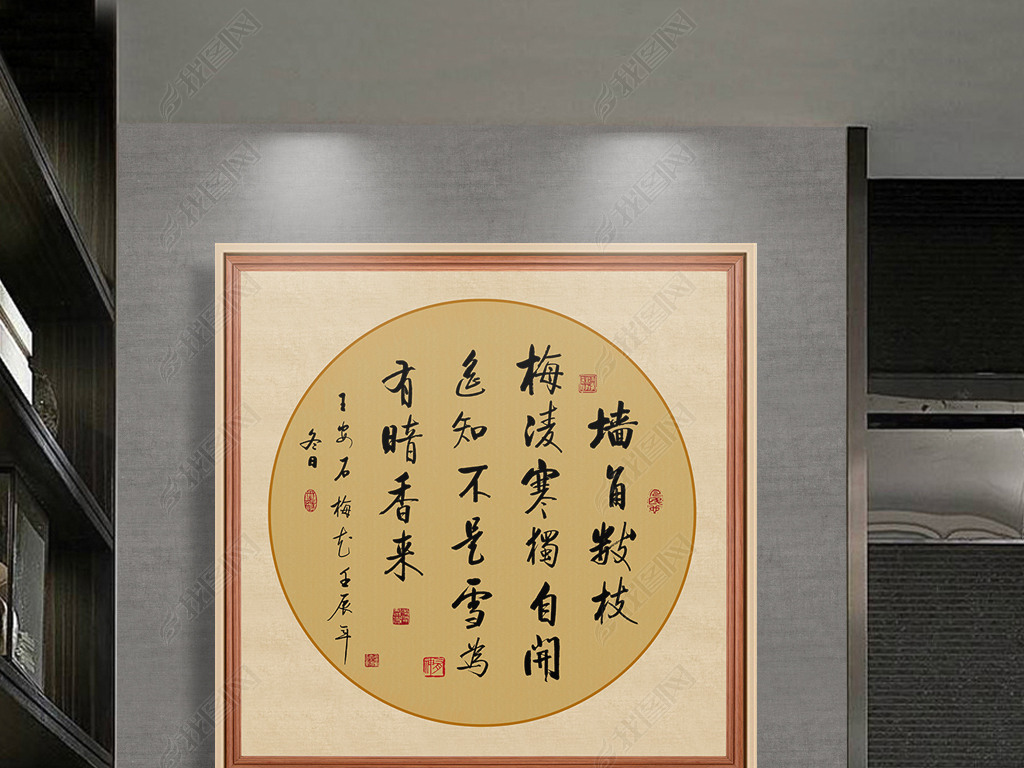 墙角数枝
梅凌寒独自開
遥知不是雪為
有暗香来
王安石梅花壬辰年
冬日